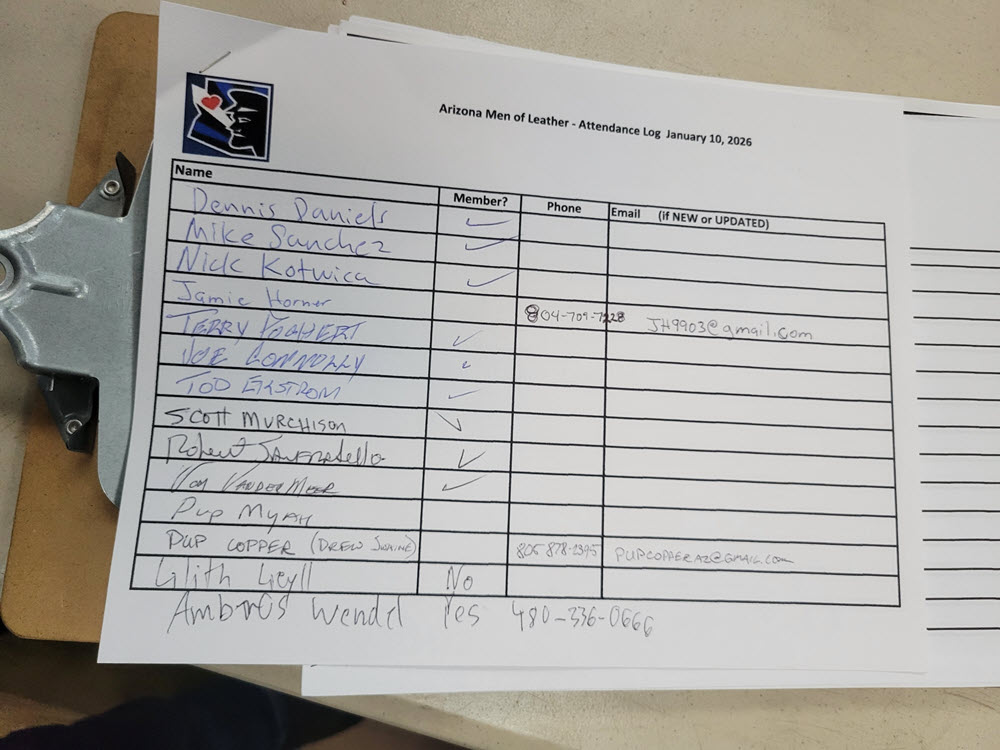 Arizona Men of Leather - Attendance Log January 10, 2026
Name Member? Phone Email (if NEW or UPDATED)
Dennis Daniels ✓
Mike Sanchez ✓
Nick Kotwica ✓
Jamie Horner 804-709-7228 JH9903@gmail.com
TERRY ✓
JOE CONNOLLY ✓
TOD EKSTROM ✓
SCOTT MURCHISON ✓
Robert ✓
VANDERMEER ✓
Pup MYAH
PUP COPPER (DREW 805 878-2395 PUPCOPPERAZ@GMAIL.COM
Lilith Geyll No
Ambros Wendel Yes 480-336-0666